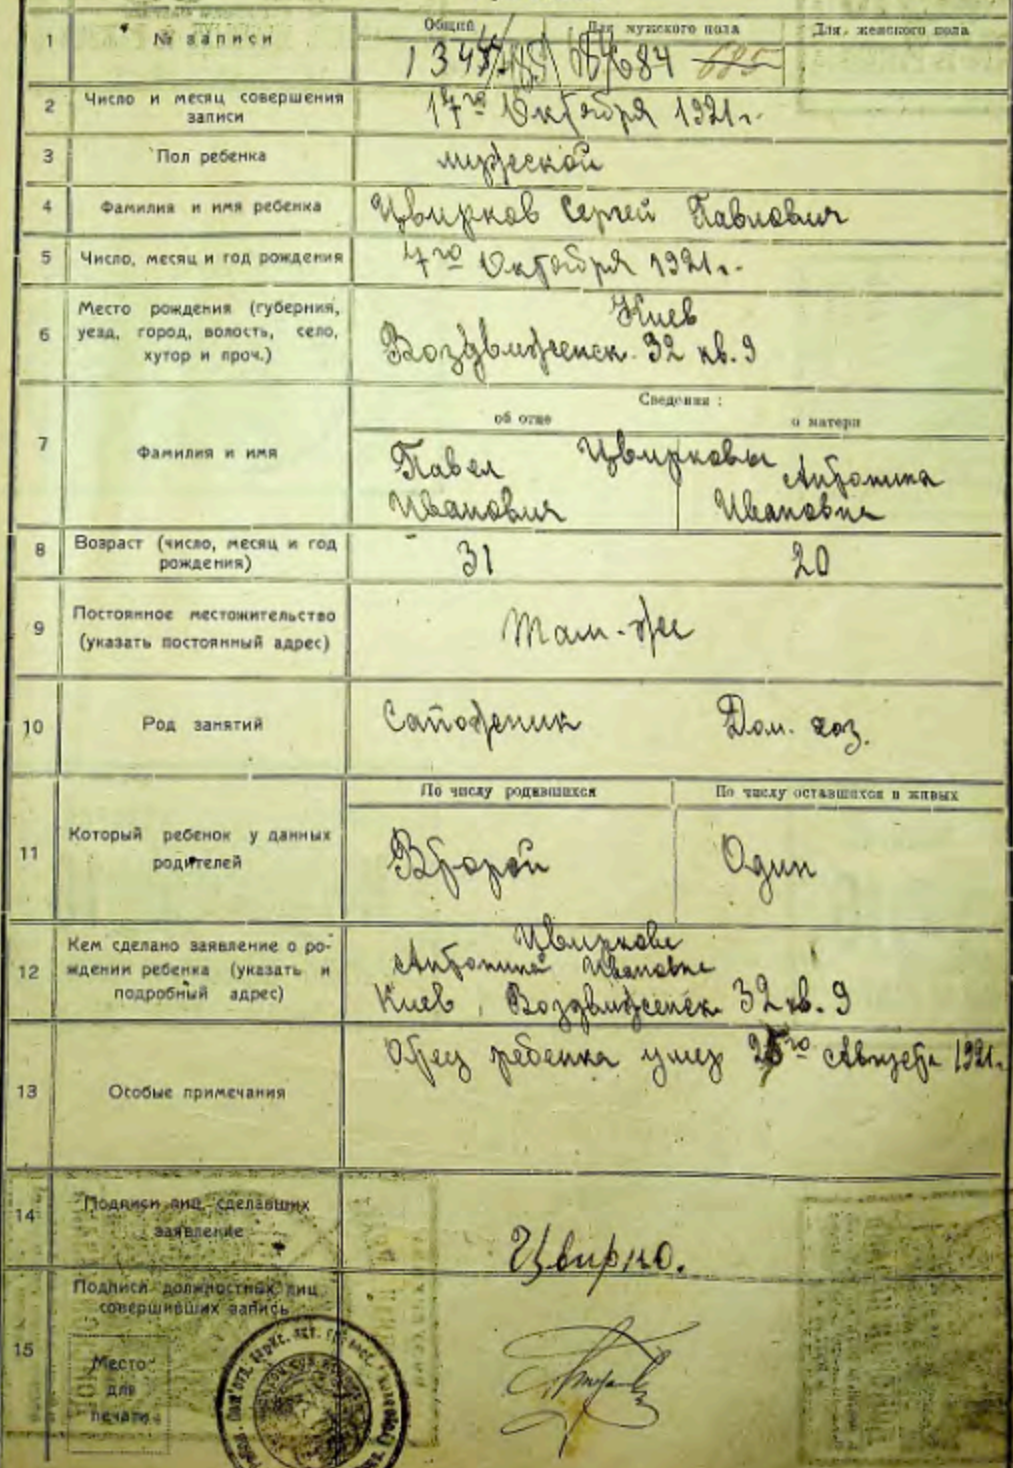 Общий Для мужского пола Для женского пола
1 № записи 684 685
2 Число и месяц совершения
записи
17го Октября 1921 г.
3 Пол ребенка мужеской
4 Фамилия и имя ребенка Цвирков Сергей Павлович
5 Число, месяц и год рождения 4го Октября 1921 г.
6 Место рождения (губерния,
уезд, город, волость, село,
хутор и проч.)
Киев
Воздвиженск. 32 кв. 9
Сведения:
об отце о матери
7 Фамилия и имя
Цвирковы
Павел Антонина
Иванович Ивановна
8 Возраст (число, месяц и год
рождения)
31 20
9 Постоянное местожительство
(указать постоянный адрес)
Там-же
10 Род занятий Сапожник Дом. хоз.
По числу родившихся По числу оставшихся в живых
11 Который ребенок у данных
родителей
Второй Один
12 Кем сделано заявление о ро-
ждении ребенка (указать и
подробный адрес)
Цвиркова
Антонина Ивановна
Киев, Воздвиженск. 32 кв. 9
13 Особые примечания
Отец ребенка умер Августа 1921 г.
14 Подписи лиц, сделавших
заявление
Цвирко.
15 Подписи должностных лиц
совершивших запись
Место
для
печати